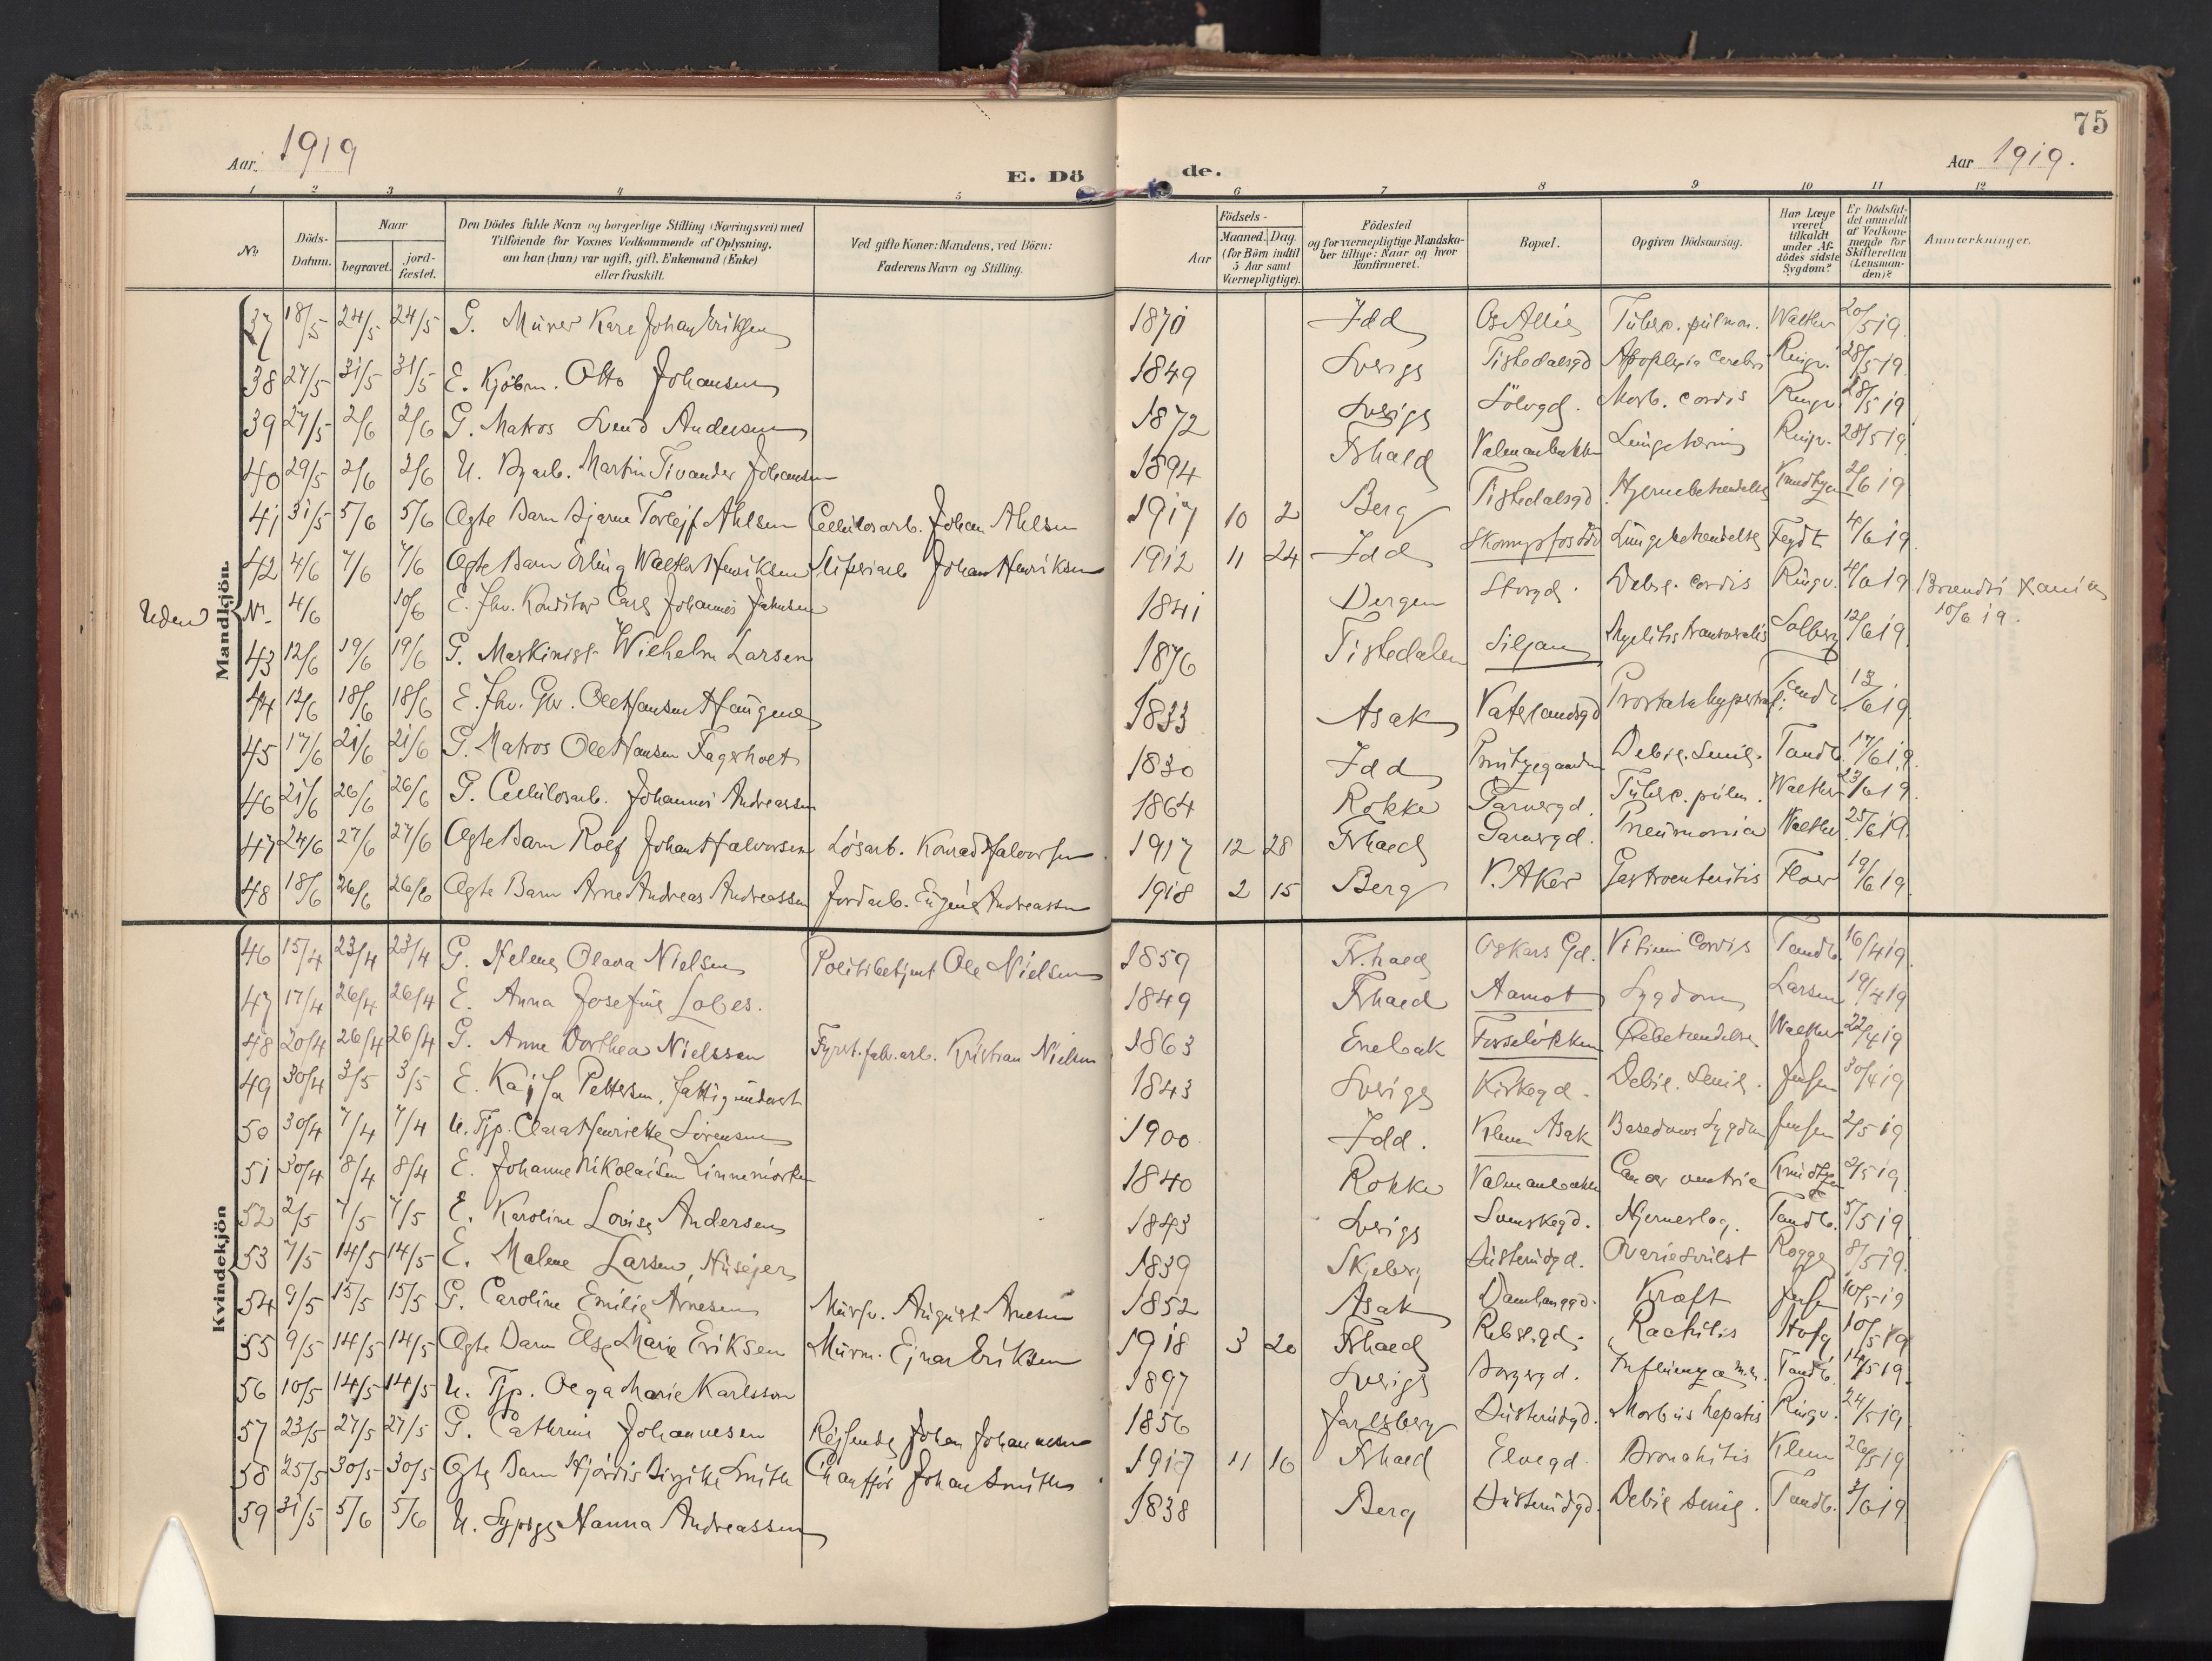 75
Aar 1919
E. Dö de.
Aar 1919.
1 2 3 4 5 6 7 8 9 10 11 12
No. Döds-Datum. Naar begravet. jord-fæstet. Den Dödes fulde Navn og borgerlige Stilling (Næringsvei) med Tilföiende for Voxnes Vedkommende af Oplysning, om han (hun) var ugift, gift, Enkemand (Enke) eller fraskilt. Ved gifte Koner: Mandens, ved Börn: Faderens Navn og Stilling. Födsels- Aar Maaned. Dag. (for Börn indtil 5 Aar samt Værnepligtige). Födested og for værnepligtige Mandskaber tillige: Naar og hvor konfirmeret. Bopæl. Opgiven Dödsaarsag. Har Læge været tilkaldt under Afdödes sidste Sygdom? Er Dödsfaldet anmeldt af Vedkommende for Skifteretten (Lensmanden)? Anmærkninger.
Mandkjön
37 18/5 24/5 24/5 G. Murer Karl Johan Eriksen 1870 Idd Os Allie Tuberc. pulmon. Walther 20/5 19.
38 27/5 31/5 31/5 E. Kjöbm. Otto Johansen 1849 Sverige Tistedalsgd Apoplexia cerebri Ringv. 28/5 19.
39 27/5 2/6 2/6 G. Matros Svend Andersen 1872 Sverige Sölvgd. Morb. cordis Ringv. 28/5 19
40 29/5 2/6 2/6 U. Byarb. Martin Tivander Johansen 1894 Frhald Valmanbakken Lungetæring Ringv. 28/5 19
41 31/5 5/6 5/6 Ægte Barn Bjarne Torleif Ahlsen Cellulosarb. Johan Ahlsen 1917 10 2 Berg Tistedalsgd Hjernebetændelse Knudtzen 2/6 19
42 4/6 7/6 7/6 Ægte Barn Erling Walther Henriksen Sliperiarb Johan Henriksen 1912 11 24 Idd Skonningsfos Lungebetændelse Feydt 4/6 19.
Uden Nr. 4/6 10/6 E. fhv. Konditor Carl Johannes Jahnsen 1841 Bergen Storgd. Debil. cordis Ringv. 4/6 19 Brændt i Xania 10/6 19.
43 12/6 19/6 19/6 G. Maskinist Wilhelm Larsen 1876 Tistedalen Siljan Myelitis transversalis Solberg 12/6 19.
44 12/6 18/6 18/6 E. fhv. Gbr. Ole Hansen Haugene 1833 Asak Vaterlandsgd Prostatahypertrof. Tandb. 13/6 19.
45 17/6 21/6 21/6 G. Matros Ole Hansen Fagerholt 1830 Idd Debil. senil. Tandb. 17/6 19.
46 21/6 26/6 26/6 G. Cellulosarb. Johannes Andreassen 1864 Rokke Garvergd. Tuberc. pulm. Walther 23/6 19.
47 24/6 27/6 27/6 Ægte Barn Rolf Johan Halvorsen Lösarb. Konrad Halvorsen 1917 12 28 Frhald Garvergd. Pneumonia Walther 25/6 19.
48 18/6 26/6 26/6 Ægte Barn Arne Andreas Andreassen Jordarb. Eugene Andreassen 1918 2 15 Berg V. Aker Gastroenteritis Floer 19/6 19.
Kvindekjön
46 15/4 23/4 23/4 G. Helene Olava Nielsen Politibetjent Ole Nielsen 1859 Fr.hald Oskars Gd. Vitium Cordis Tandb. 16/4 19.
47 17/4 26/4 26/4 E. Anna Josefine Lobes. 1849 Frhald Aamot Sygdom Larsen 19/4 19
48 20/4 26/4 26/4 G. Anne Dorthea Nielssen Fyrst.fab.arb. Kristian Nielsen 1863 Enebak Fosselökken Walther 22/4 19
49 30/4 3/5 3/5 E. Kajsa Pettersen, fattigunderst 1843 Sverige Kirkegd. Debil. senil. Jensen 30/4 19
50 30/4 7/4 7/4 U. Tjp. Clara Henriette Sörensen 1900 Idd. Klem Asak Basedows Sygdom Jensen 2/5 19
51 30/4 8/4 8/4 E. Johanne Nikolaisen Linnemörken 1840 Rokke Valmanbakken Cancer ventric Knudtzen 2/5 19.
52 2/5 7/5 7/5 E. Karoline Lovise Andersen 1843 Sverige Svenskegd. Hjerneslag. Tandb. 5/5 19
53 7/5 14/5 14/5 E. Malene Larsen, Huseier 1839 Skjeberg Busterudgd. Ovariesvulst Rogge 8/5 19.
54 9/5 15/5 15/5 G. Caroline Emilie Arnesen Mursv. August Arnesen 1852 Asak Damhaugd. Kræft Jensen 10/5 19
55 9/5 14/5 14/5 Ægte Barn Else Marie Eriksen Murm. Ejnar Eriksen 1918 3 20 Frhald Rebsl.gd. Rachitis Hofg 10/5 19
56 10/5 14/5 14/5 U. Tjp. Olga Marie Karlsson 1897 Sverige Borgergd. Influenza m.m. Tandb. 14/5 19.
57 23/5 27/5 27/5 G. Cathrine Johannesen Rejsende Johan Johannesen 1856 Jarlsberg Busterudgd. Morbus hepatis Ringv. 24/5 19
58 25/5 30/5 30/5 Ægte Barn Hjördis Birgitte Smith Chaufför Johan Smith 1917 11 16 Frhald Elvegd. Bronchitis Klem 26/5 19
59 31/5 5/6 5/6 U. Sypige Hanna Andreassen 1838 Berg Busterudgd. Debil senil. Tandb. 3/6 19